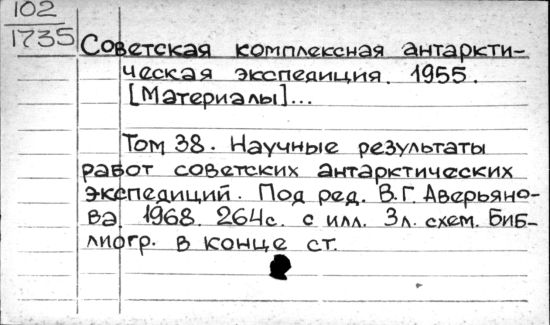 102
1735
Советская комплексная антаркти-
ческая экспедиция. 1955.
[Материалы]...
Том 38. Научные результаты
работ советских антарктических
экспедиций. Под ред. В.Г. Аверьяно-
ва. 1968. 264с. с илл. 3л. схем. Биб-
лиогр. в конце ст.